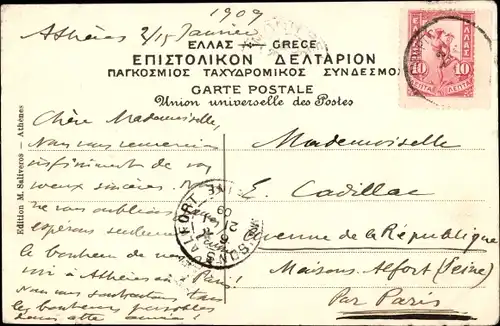 1909
Athènes 2/15 Janvier
ΕΛΛΑΣ GRECE
ΕΠΙΣΤΟΛΙΚΟΝ ΔΕΛΤΑΡΙΟΝ
ΠΑΓΚΟΣΜΙΟΣ ΤΑΧΥΔΡΟΜΙΚΟΣ ΣΥΝΔΕΣΜΟΣ
CARTE POSTALE
Union universelle des Postes
ΕΛΛΑΣ
10 10
ΛΕΠΤΑ ΛΕΠΤΑ
Edition M. Saliveros — Athènes
Chère Mademoiselle,
Nous vous remercions
infiniment de vos
vœux sincères.
ne vous oublions
espérons seulement
le bonheur de vous
à Athènes Paris!
Nous vous souhaitons tous
les bonheurs possibles
dans cette année!
Mademoiselle
E. Cadillac
Avenue de la République
Maisons-Alfort (Seine)
Par Paris
MAISONS-ALFORT SEINE
21
09